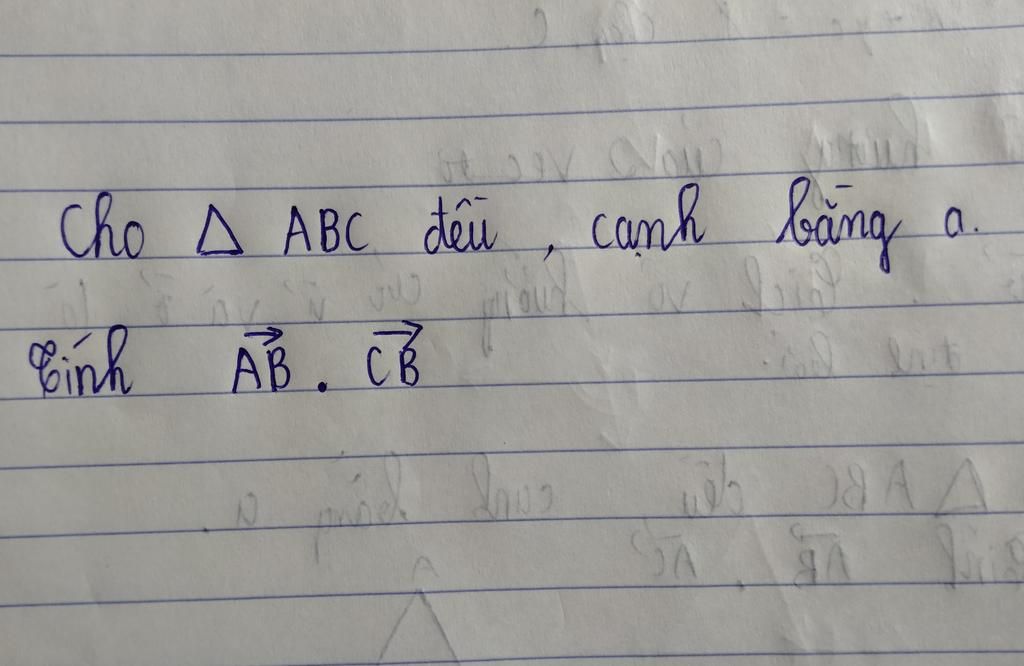 Cho Δ ABC đều, cạnh bằng a.
Tính $\overrightarrow{AB} . \overrightarrow{CB}$